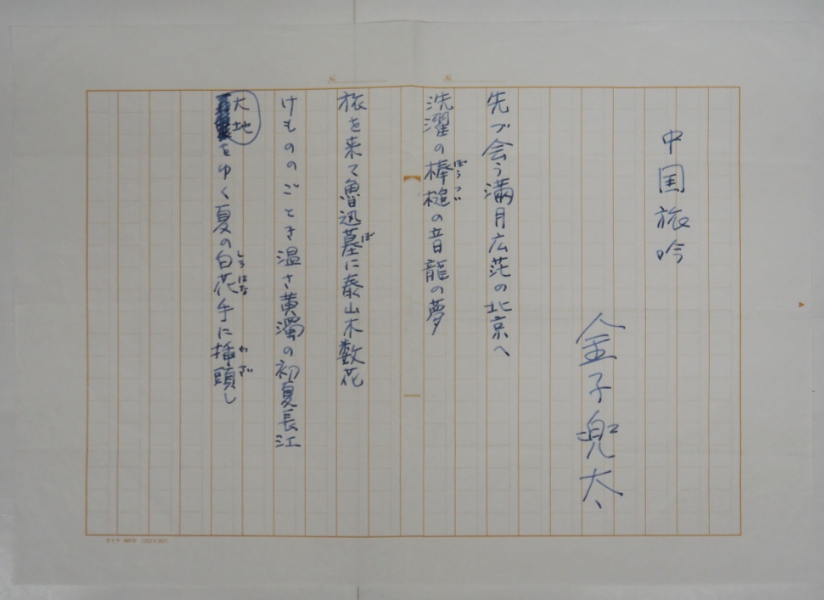 中国旅吟
金子兜太
先づ会う満月広茫の北京へ
洗濯の棒槌の音龍の夢
ぼうつい
旅を来て魯迅墓に泰山木数花
ぼ
けもののごとき温さ黄濁の初夏長江
大地をゆく夏の白花手に挿頭し
しろはな
かざ